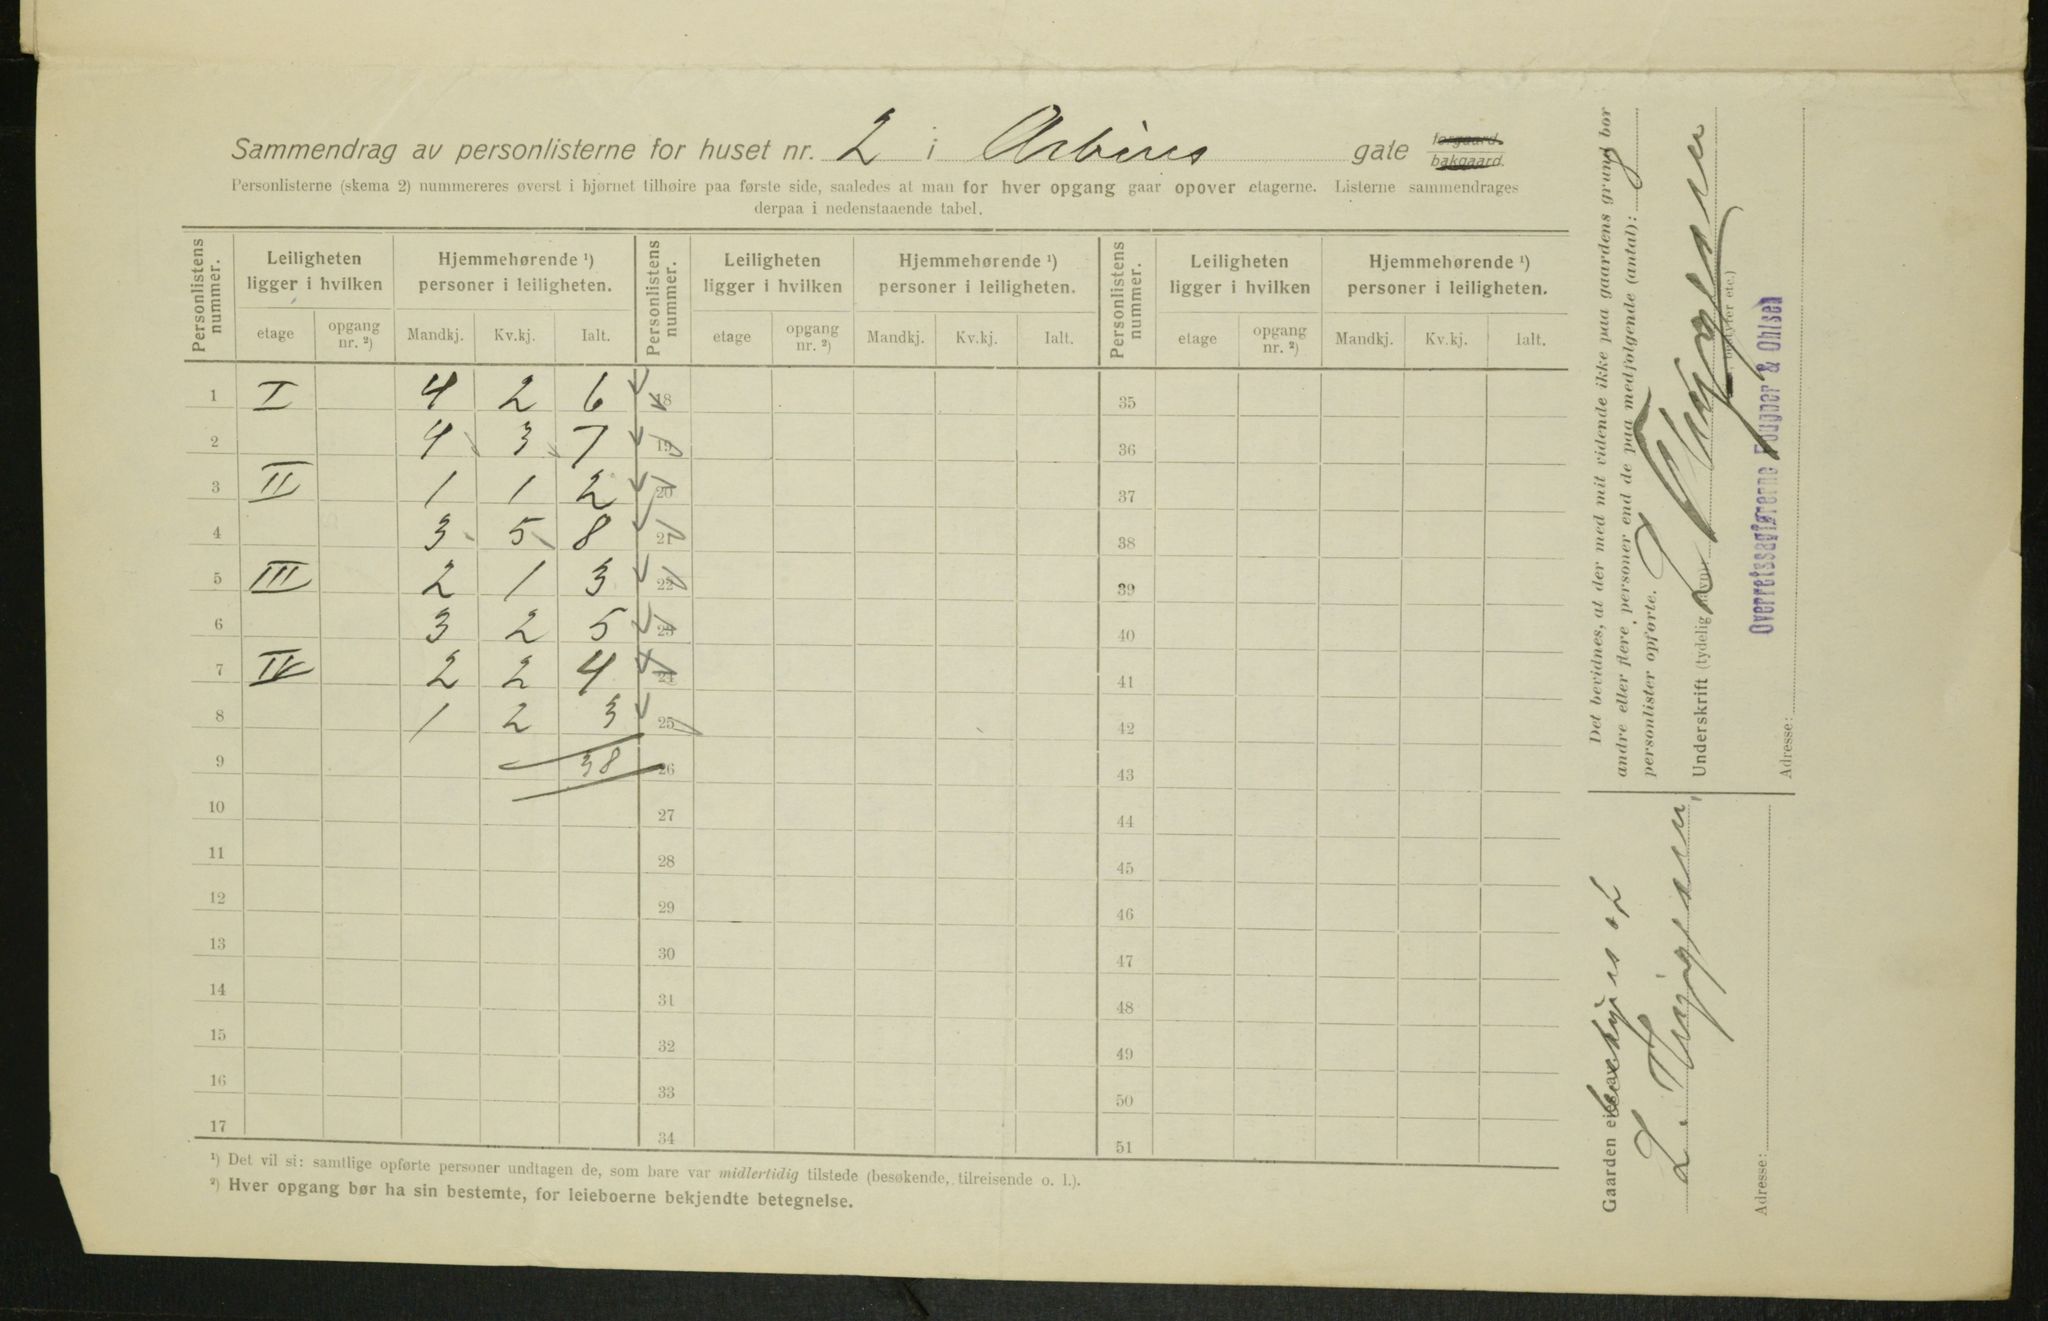 Sammendrag av personlisterne for huset nr. 2 i Arbins gate forgaard. bakgaard.
Personlisterne (skema 2) nummereres øverst i hjørnet tilhøire paa første side, saaledes at man for hver opgang gaar opover etagerne. Listerne sammendrages
derpaa i nedenstaaende tabel.
Personlistens nummer. Leiligheten ligger i hvilken Hjemmehørende ¹) personer i leiligheten. Personlistens nummer. Leiligheten ligger i hvilken Hjemmehørende ¹) personer i leiligheten. Personlistens nummer. Leiligheten ligger i hvilken Hjemmehørende ¹) personer i leiligheten.
etage opgang nr. ²) Mandkj. Kv.kj. Ialt. etage opgang nr. ²) Mandkj. Kv.kj. Ialt. etage opgang nr. ²) Mandkj. Kv.kj. Ialt.
1 I 4 2 6 18 35
2 4 3 7 19 36
3 II 1 1 2 20 37
4 3 5 8 21 38
5 III 2 1 3 22 39
6 3 2 5 23 40
7 IV 2 2 4 24 41
8 1 2 3 25 42
9 38 26 43
10 27 44
11 28 45
12 29 46
13 30 47
14 31 48
15 32 49
16 33 50
17 34 51
¹) Det vil si: samtlige opførte personer undtagen de, som bare var midlertidig tilstede (besøkende, tilreisende o. l.).
²) Hver opgang bør ha sin bestemte, for leieboerne bekjendte betegnelse.
Det bevidnes, at der med mit vidende ikke paa gaardens grund bor
andre eller flere personer end de paa medfølgende (antal): 8
personlister opførte.
Underskrift (tydelig navn):
Overretssagførerne Fougner & Ohlsen
Adresse:
Gaarden bestyres av
Adresse: